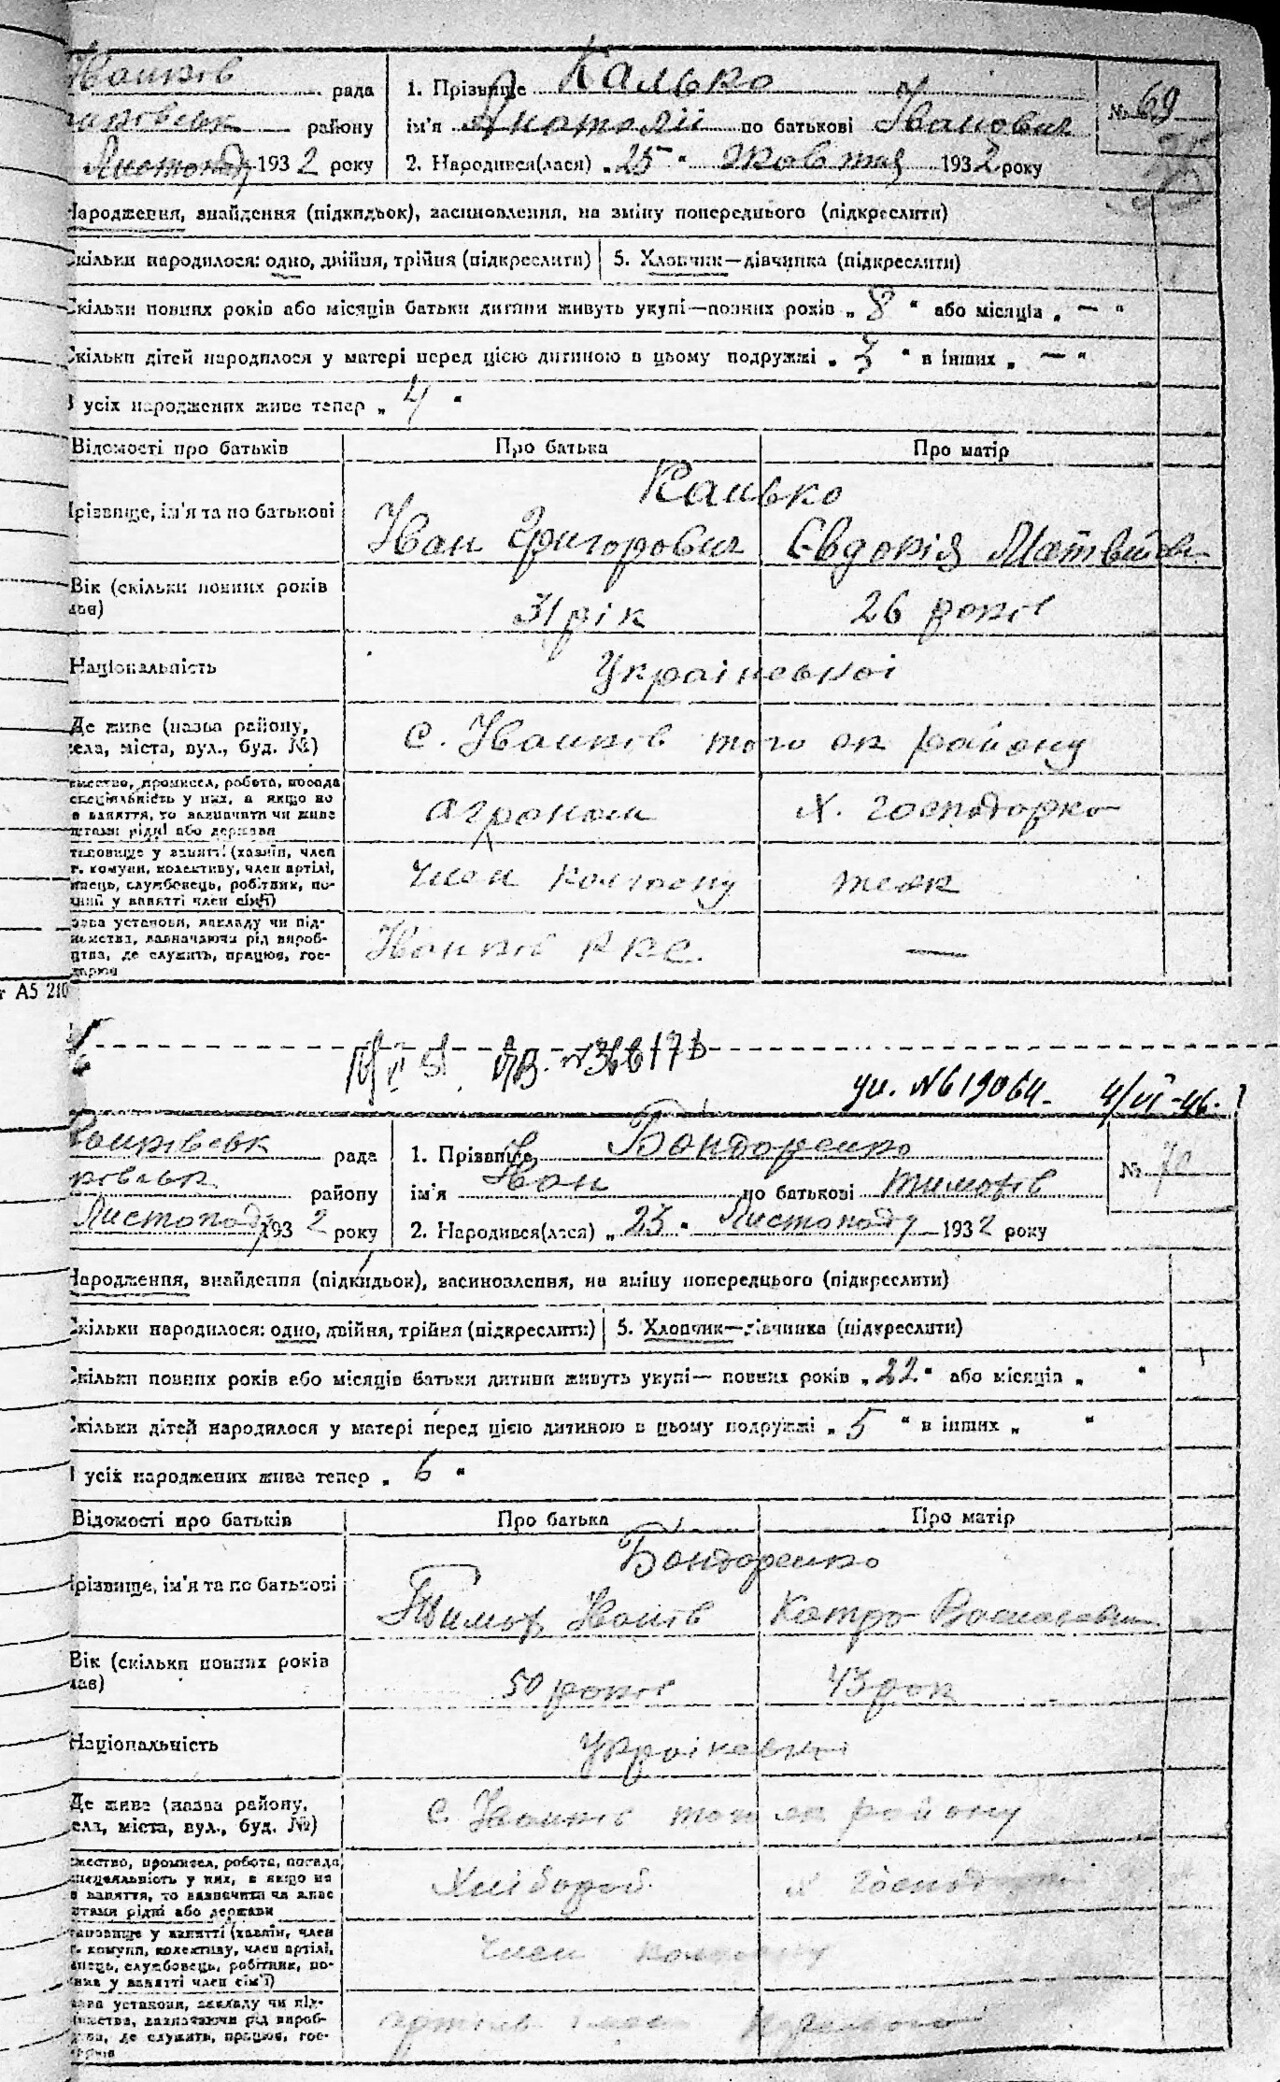 Іванків рада
району
Листопаду 1932 року
1. Прізвище Калько
ім'я Анатолій по батькові Іванович
2. Народився(лася) „25" жовтня 1932 року
№ 69
Народження, знайдення (підкидьок), засиновлення, на зміну попереднього (підкреслити)
Скільки народилося: одно, двійня, трійня (підкреслити) 5. Хлопчик—дівчинка (підкреслити)
Скільки повних років або місяців батьки дитини живуть укупі—повних років „8" або місяців „—"
Скільки дітей народилося у матері перед цією дитиною в цьому подружжі „3" в інших „—"
З усіх народжених живе тепер „4"
Відомості про батьків Про батька Про матір
Калько
Прізвище, ім'я та по батькові
Іван Григорович Євдокія Матвіївн
Вік (скільки повних років
мав)
31 рік 26 років
Національність Української
Де живе (назва району,
села, міста, вул., буд. №)
с. Іванків того ж району
ємство, промисел, робота, посада
спеціяльність у них, а якщо не
в заняття, то зазначити чи живе
штами рідні або держави
агроном х. господарка
тановище у занятті (хазяїн, член
г. комуни, колективу, член артілі,
инець, службовець, робітник, по-
жний у занятті член сім'ї)
Член колгоспу теж
азва установи, закладу чи під-
иємства, зазначаючи рід вироб-
цтва, де служить, працює, гос-
дарює
Іванків —
А5 210
ул. №619064. 4/VI-46.
рада
району
Листопаду 1932 року
1. Прізвище Бондаренко
ім'я Іван по батькові Тимофів
2. Народився(лася) „23" Листопаду 1932 року
№ 70
Народження, знайдення (підкидьок), засиновлення, на зміну попереднього (підкреслити)
Скільки народилося: одно, двійня, трійня (підкреслити) 5. Хлопчик—дівчинка (підкреслити)
Скільки повних років або місяців батьки дитини живуть укупі— повних років „22" або місяців „ "
Скільки дітей народилося у матері перед цією дитиною в цьому подружжі „5" в інших „ "
З усіх народжених живе тепер „6"
Відомості про батьків Про батька Про матір
Бондаренко
Прізвище, ім'я та по батькові
Тимоф. Іванів Катра
Вік (скільки повних років
мав)
50 років 43 рок
Національність
Де живе (назва району,
села, міста, вул., буд. №)
с. Іванків того ж району
ємство, промисел, робота, посада
спеціяльність у них, а якщо не
в заняття, то зазначити чи живе
штами рідні або держави
Хлібороб х господ
тановище у занятті (хазяїн, член
г. комуни, колективу, член артілі,
инець, службовець, робітник, по-
жник у занятті член сім'ї)
Член колгоспу
азва установи, закладу чи під-
иємства, зазначаючи рід вироб-
цтва, де служить, працює, гос-
дарює